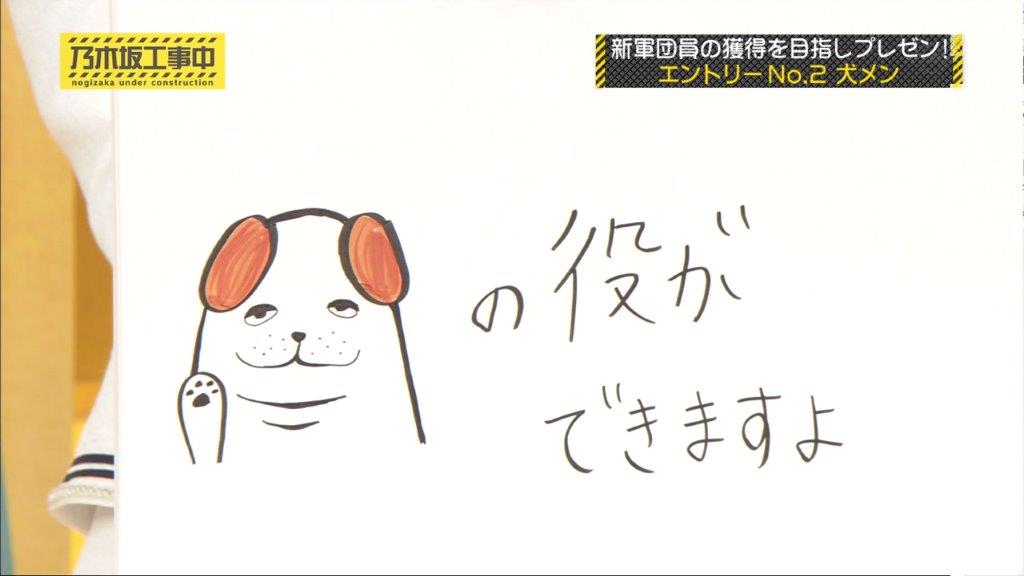 乃木坂工事中
nogizaka under construction
新軍団員の獲得を目指しプレゼン!
エントリーNo.2 犬メン
の役が
できますよ